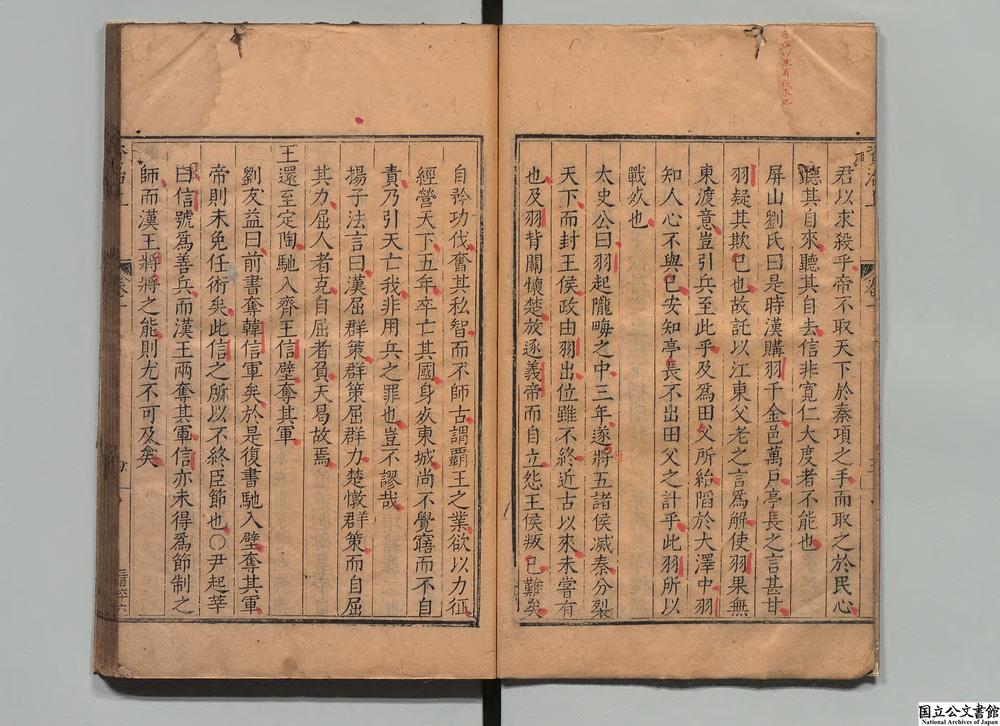 君以求殺乎帝不取天下於秦項之手而取之於民心
聽其自來聽其自去信非寬仁大度者不能也
屏山劉氏曰是時漢購羽千金邑萬戶亭長之言甚甘
羽疑其欺已也故託以江東父老之言為解使羽果無
東渡意豈引兵至此乎及為田父所紿陷於大澤中羽
知人心不與已安知亭長不出田父之計乎此羽所以
戰死也
太史公曰羽起隴晦之中三年遂將五諸侯滅秦分裂
天下而封王侯政由羽出位雖不終近古以來未嘗有
也及羽背關懷楚放逐義帝而自立怨王侯叛已難矣
自矜功伐奮其私智而不師古謂覇王之業欲以力征
經營天下五年卒亡其國身死東城尚不覺寤而不自
責乃引天亡我非用兵之罪也豈不謬哉
揚子法言曰漢屈群策群策屈群力楚憞群策而自屈
其力屈人者克自屈者負天曷故焉
王還至定陶馳入齊王信壁奪其軍
劉友益曰前書奪韓信軍矣於是復書馳入壁奪其軍
帝則未免任術矣此信之所以不終臣節也○尹起莘
曰信號為善兵而漢王兩奪其軍信亦未得為節制之
師而漢王將將之能則尤不可及矣
国立公文書館
National Archives of Japan